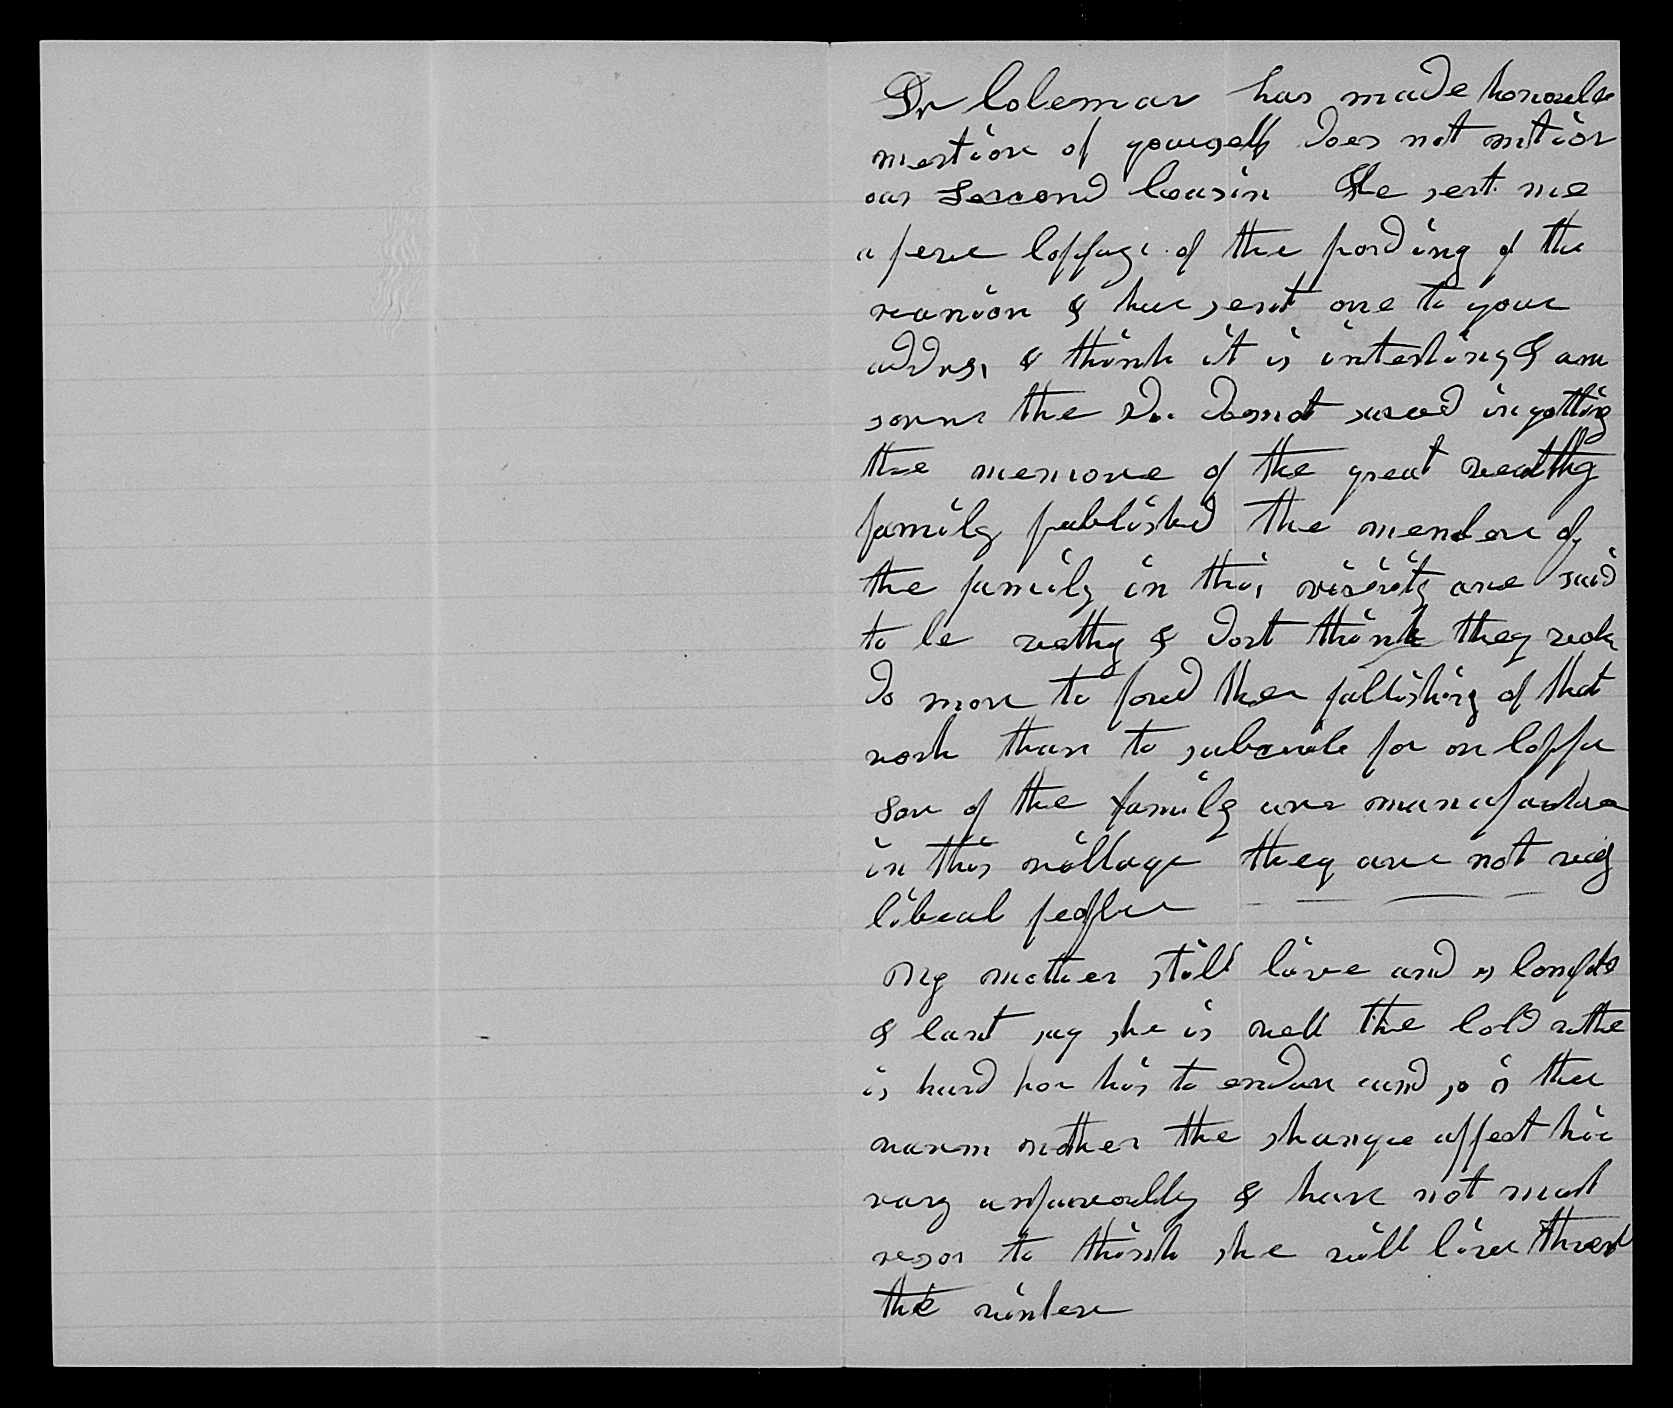 Dr Coleman has made honoeuble
mention of yourself does not mition
our second Cousin She sent me
a ferre Coppage of the
reanion & have sent one to your
addrss & think it is intersting & am
sorrur the Dr. does not suceed in gotting
the memore of the great wealthy
family published The member of
the family in this visinity are said
to be welthy & dont think they
do more to the publishing of that
work than to subscribe for on Coppe
Som of the family are manufacture
in this village they are not
liberal people
My mother still live and is
& cant say she is well The Cold wether
is hard for his to endure and so is the
warm wether the change affect his
vary unfavorably & have not
reson to think she will live
the winter